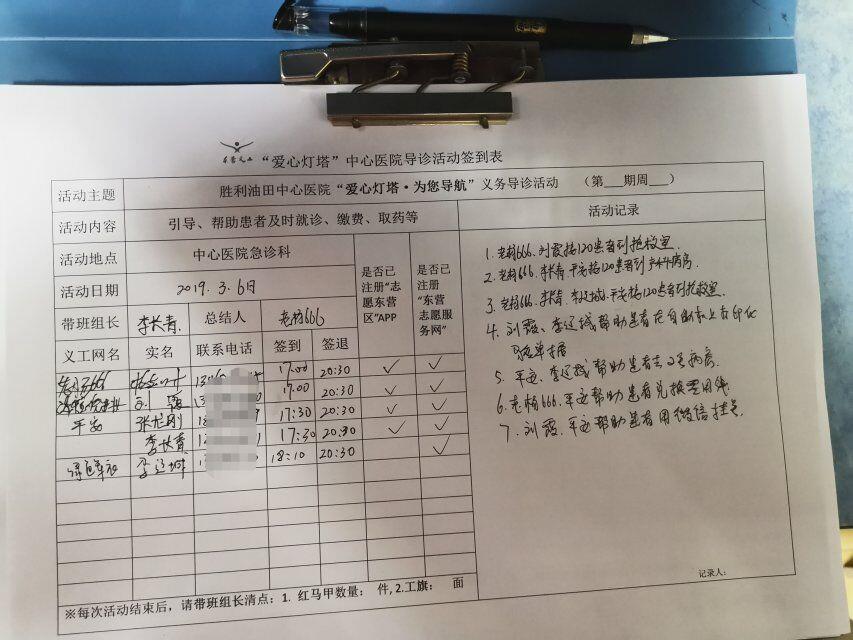 “爱心灯塔”中心医院导诊活动签到表
活动主题 胜利油田中心医院“爱心灯塔·为您导航”义务导诊活动 （第___期周___）
活动内容 引导、帮助患者及时就诊、缴费、取药等 活动记录
活动地点 中心医院急诊科 是否已注册“志愿东营区”APP 是否已注册“东营志愿服务网”
活动日期 2019.3.6日
带班组长 李长青 总结人 老杨666
义工网名 实名 联系电话 签到 签退
666 17:00 20:30 ✓ ✓
刘霞 17:00 20:30 ✓ ✓
平安 张龙刚 17:30 20:30 ✓ ✓
李长青 17:30 20:30 ✓ ✓
李运城 18:10 20:30 ✓
1. 老杨666、刘霞接120患者到抢救室.
2. 老杨666、李长青、平安接120患者到病房
3. 老杨666、李长青、李运城、平安接120患者到抢救室.
4. 刘霞、李运城帮助患者在自助机上打印化
验单据
5. 平安、李运城帮助患者去2号病房.
6. 老杨666、平安帮助患者兑换零用钱
7. 刘霞、平安帮助患者用微信挂号
记录人：
※每次活动结束后，请带班组长清点：1. 红马甲数量： 件, 2.工旗： 面